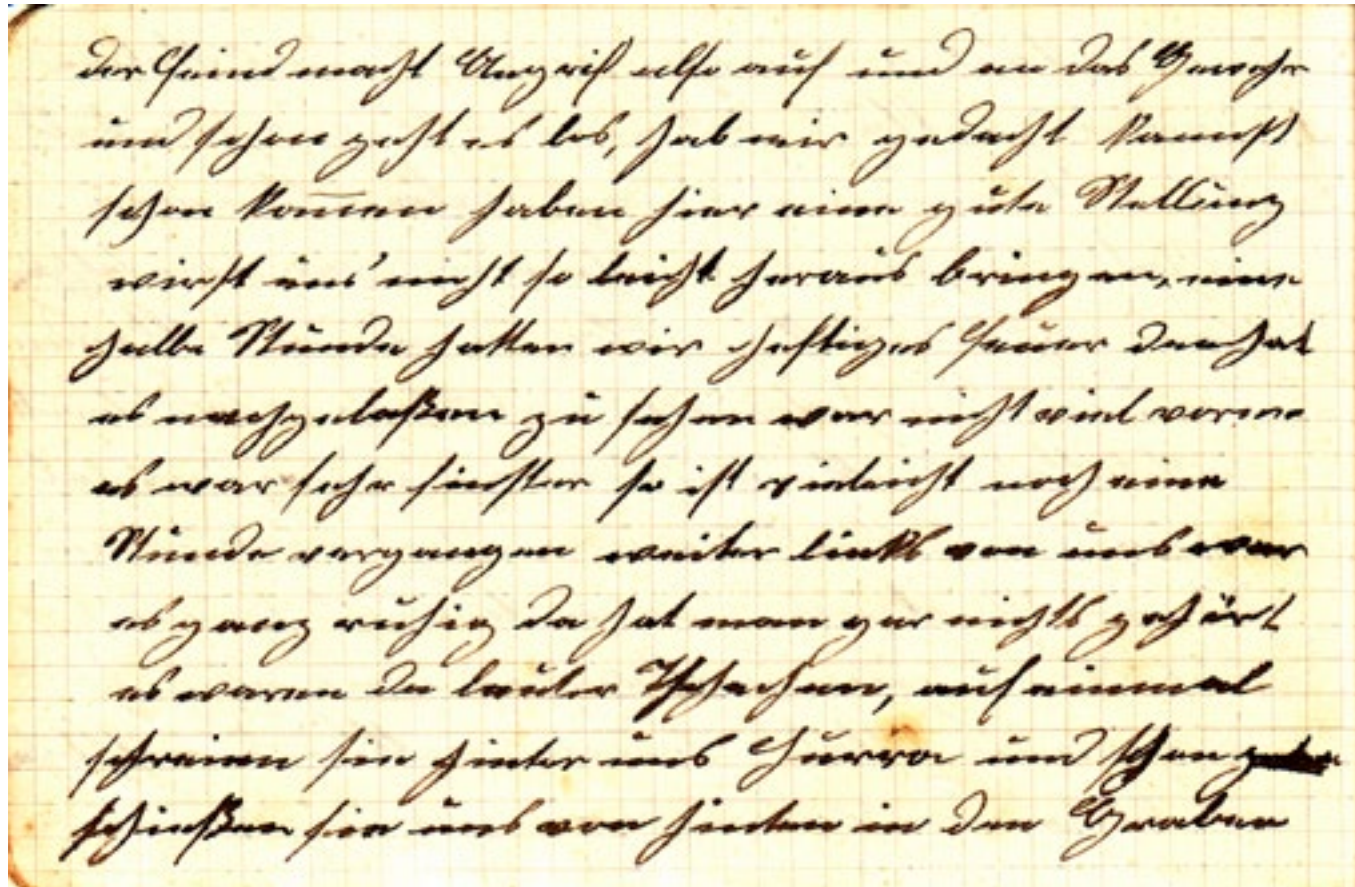 der Feind macht Angriff also auf und an das Gewehr
und schon geht es los, hab mir gedacht kannst
schon kom̄en haben hier eine gute Stellung
wirst uns nicht so leicht heraus bringen, eine
halbe Stunde hatten wir heftiges Feuer dan hat
es nachgelaßen zu sehen war nicht viel vorne
es war sehr finster so ist vieleicht noch eine
Stunde vergangen weiter links von uns war
es ganz ruhig da hat man gar nichts gehört
es waren da lauter Tschechen, auf einmal
schreien sie hinter uns Hurra und schon
schießen sie uns von hinten in den Graben